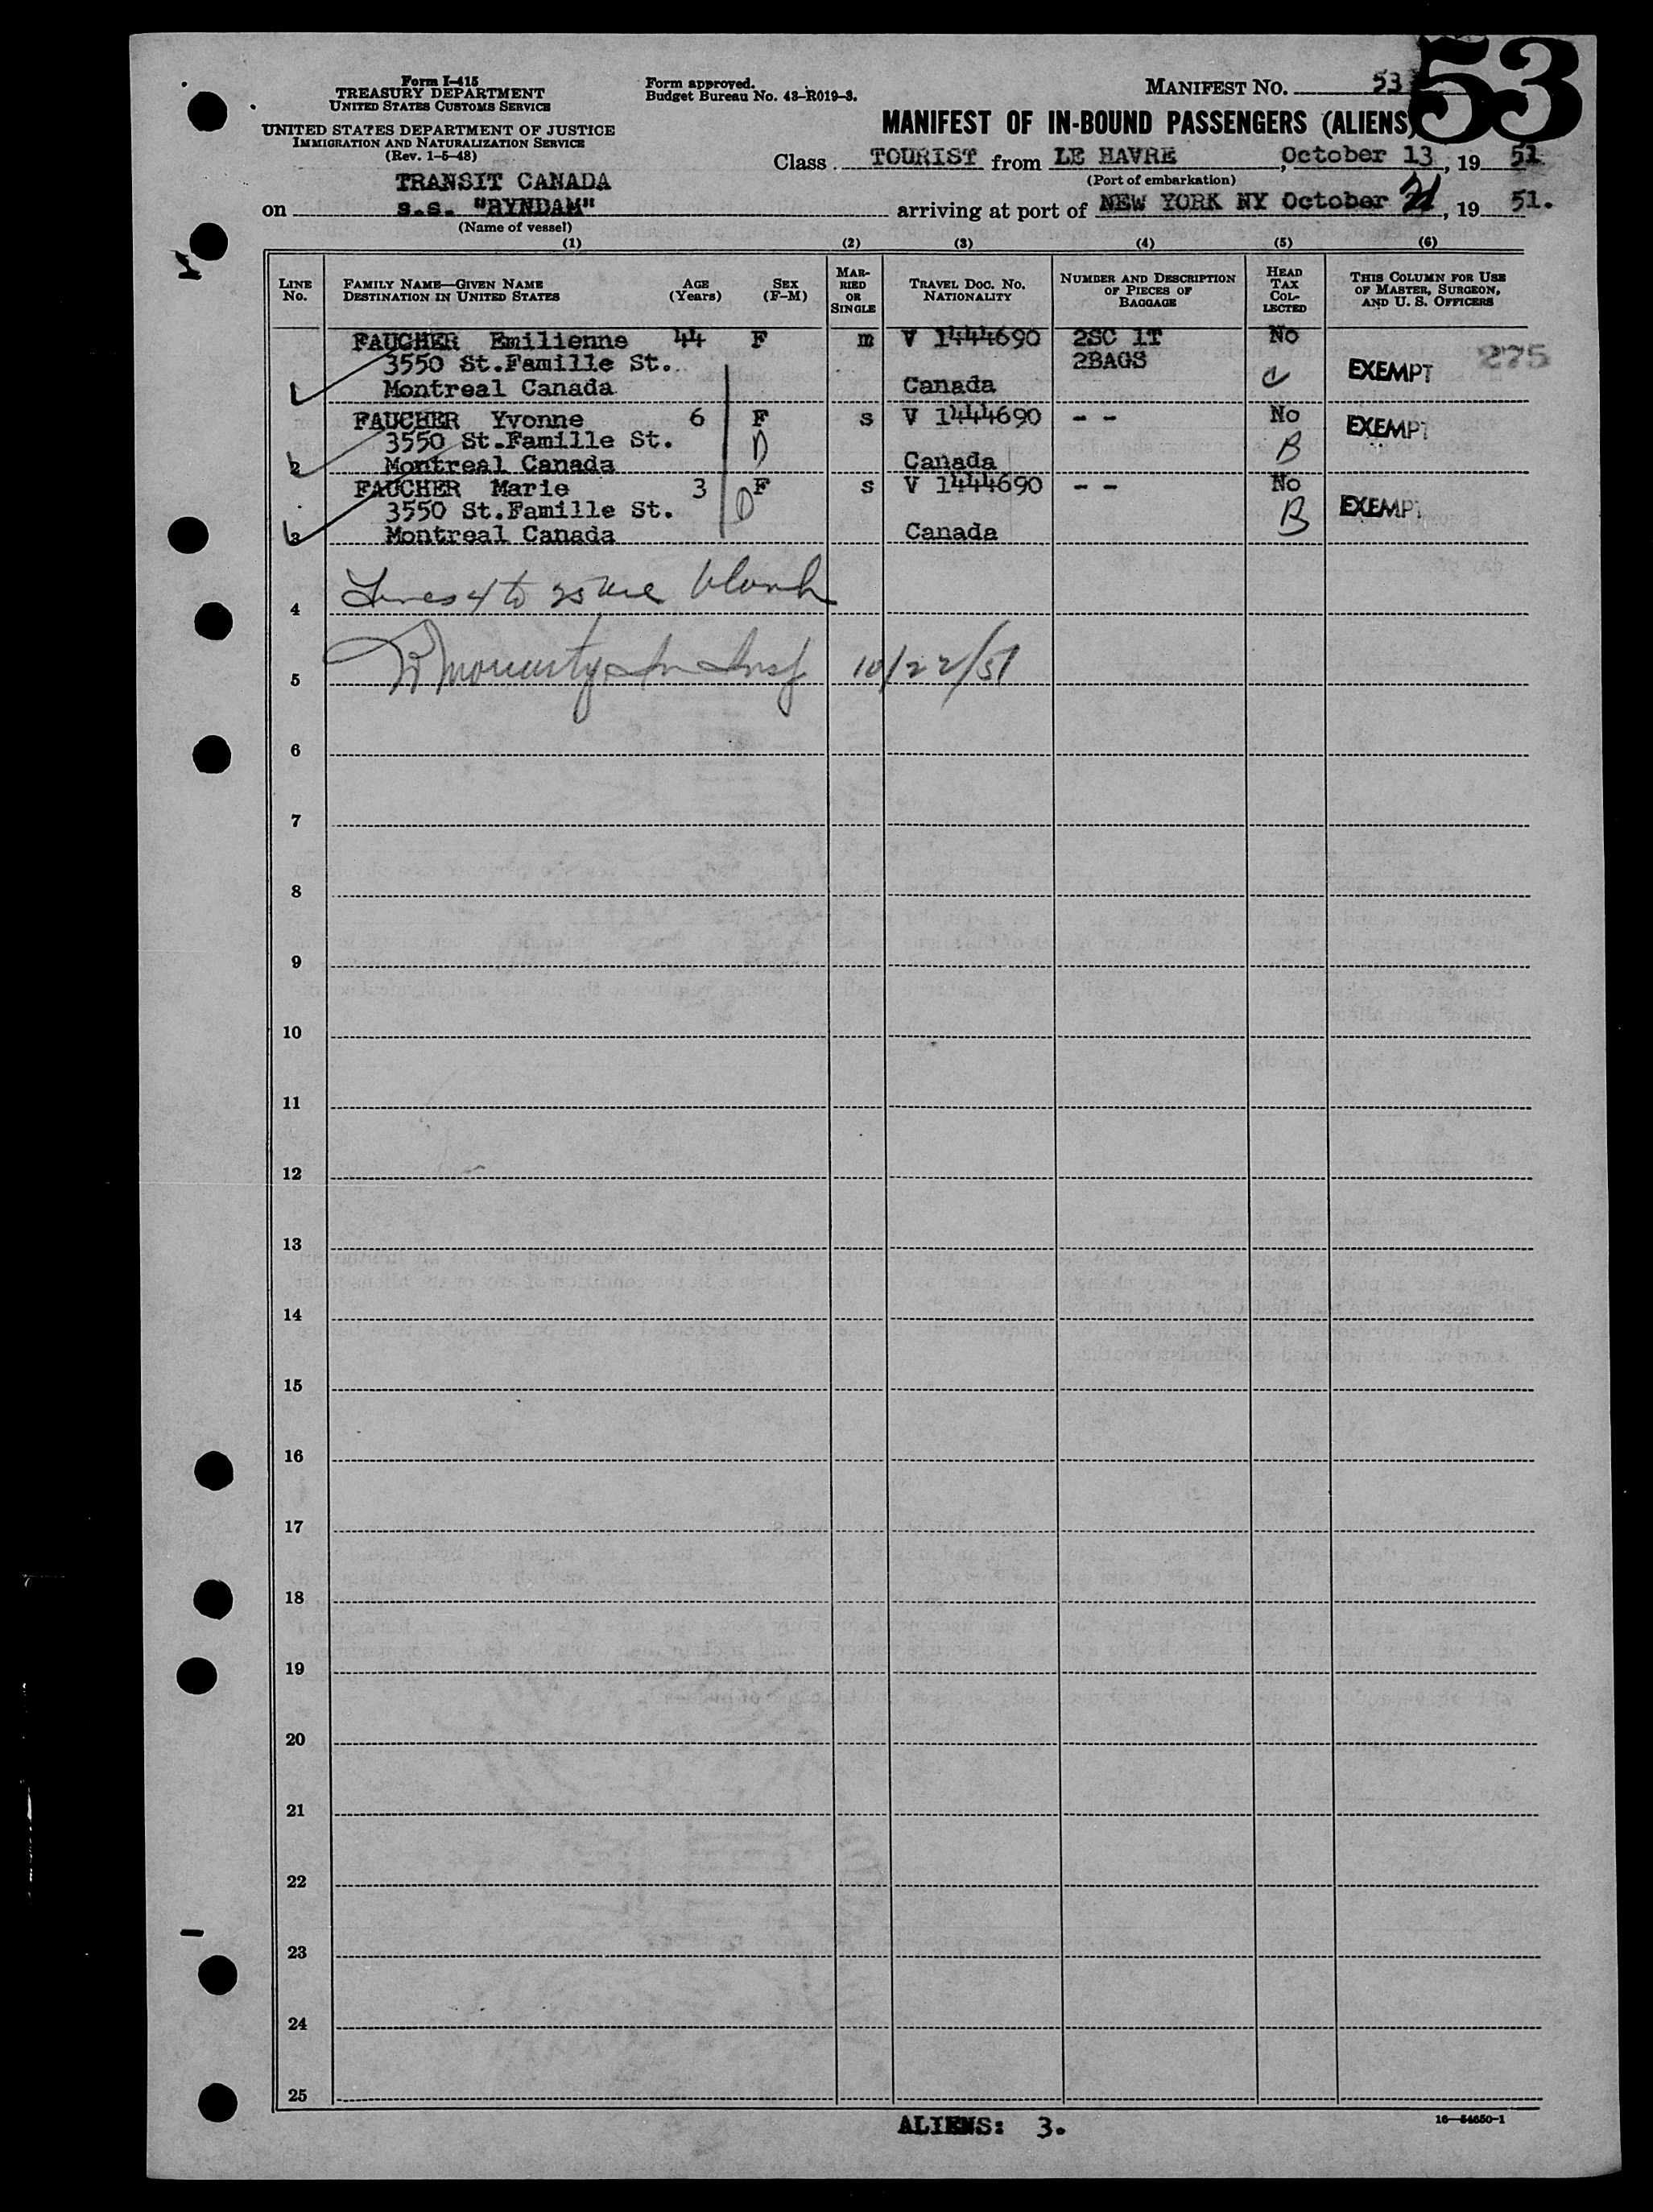 Form I-415
TREASURY DEPARTMENT
UNITED STATES CUSTOMS SERVICE
UNITED STATES DEPARTMENT OF JUSTICE
IMMIGRATION AND NATURALIZATION SERVICE
(Rev. 1-5-48)
Form approved.
Budget Bureau No. 43-R019-3.
MANIFEST NO. 53
53
MANIFEST OF IN-BOUND PASSENGERS (ALIENS)
Class TOURIST from LE HAVRE, October 13, 1951.
(Port of embarkation)
TRANSIT CANADA
on s.s. "RYNDAM" arriving at port of NEW YORK NY October 21, 1951.
(Name of vessel)
(1) (2) (3) (4) (5) (6)
LINE No. FAMILY NAME—GIVEN NAME DESTINATION IN UNITED STATES AGE (Years) SEX (F-M) MARRIED OR SINGLE TRAVEL DOC. NO. NATIONALITY NUMBER AND DESCRIPTION OF PIECES OF BAGGAGE HEAD TAX COLLECTED THIS COLUMN FOR USE OF MASTER, SURGEON, AND U. S. OFFICERS
FAUCHER Emilienne 44 F m V 1444690 2SC 1T No
3550 St.Famille St. 2BAGS EXEMPT 275
Montreal Canada Canada
FAUCHER Yvonne 6 F s V 1444690 - - No EXEMPT
3550 St.Famille St. D B
2 Montreal Canada Canada
FAUCHER Marie 3 F s V 1444690 - - No
3550 St.Famille St. D B EXEMPT
3 Montreal Canada Canada
4 Lines 4 to 25 are blank
5 Moriarty Im Insp 10/22/51
6
7
8
9
10
11
12
13
14
15
16
17
18
19
20
21
22
23
24
25
ALIENS: 3.
16—54650-1